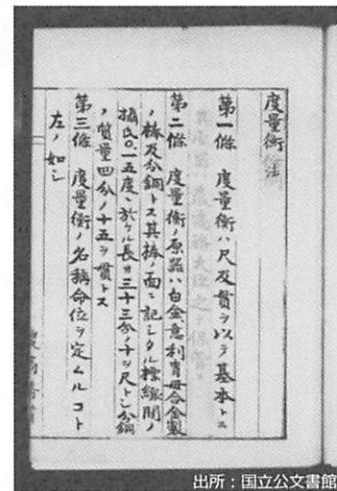 度量衡法
第一條 度量衡ハ尺及貫ヲ以テ基本トス
第二條 度量衡ノ原器ハ白金意利胄母合金製
ノ棒及分銅トス其棒ノ面ニ記シタル標線間ノ
攝氏〇.一五度ニ於ケル長サ三十三分ノ十ヲ尺トシ分銅
ノ質量四分ノ十五ヲ貫トス
第三條 度量衡ノ名稱命位ヲ定ムルコト
左ノ如シ
出所：国立公文書館